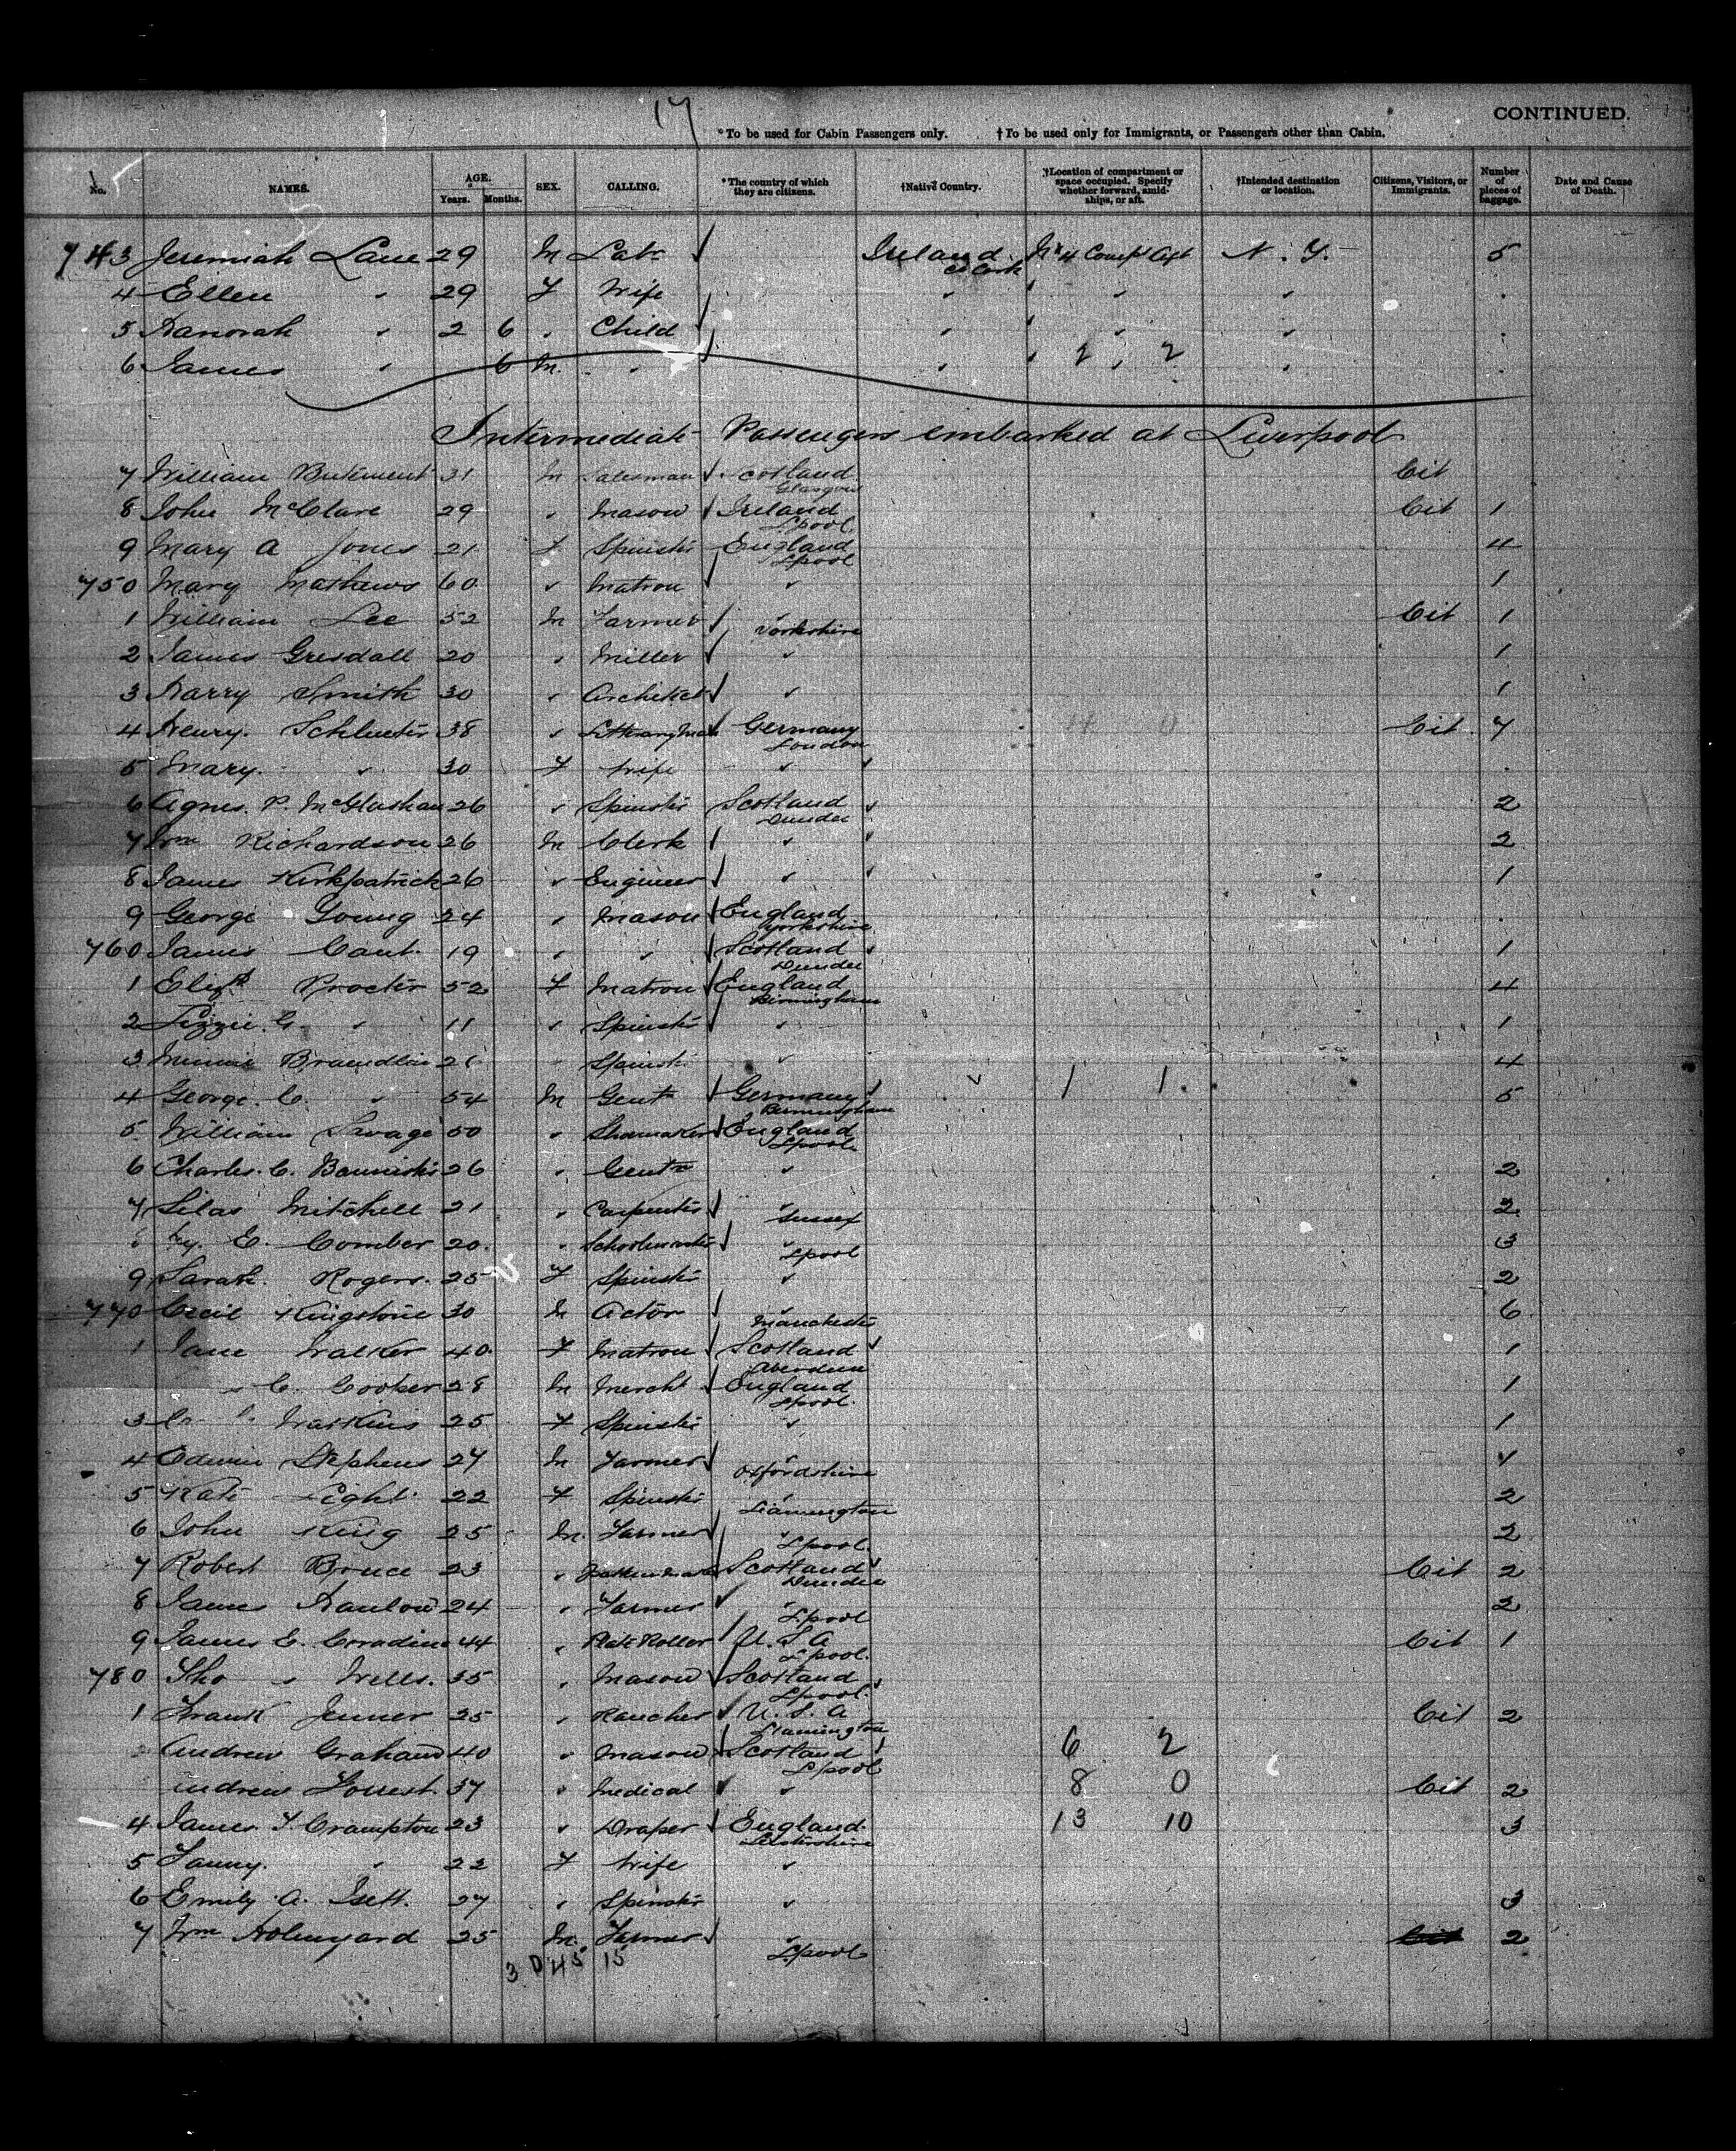 17
CONTINUED.
*To be used for Cabin Passengers only. †To be used only for Immigrants, or Passengers other than Cabin.
No. NAMES. AGE. Years. Months. SEX. CALLING. *The country of which they are citizens. †Native Country. †Location of compartment or space occupied. Specify whether forward, amidships, or aft. †Intended destination or location. Citizens, Visitors, or Immigrants. Number of pieces of baggage. Date and Cause of Death.
743 Jeremiah Lane 29 M Labr Ireland Co Cork No 4 Compt Aft N. Y. 5
4 Ellen " 29 F Wife " " "
5 Hanorah " 2 6 " Child " " "
6 James " 6 M " " " "
2 2
Intermediate Passengers embarked at Liverpool
7 William Butement 31 M Salesman Scotland Cit
Glasgow
8 John McClare 29 " Mason Ireland Cit 1
Lpool
9 Mary A Jones 21 F Spinster England 4
Lpool
750 Mary Mathews 60 " Matron " 1
1 William Lee 52 M Farmer " Cit 1
Yorkshire
2 James Gresdall 20 " Miller " 1
3 Harry Smith 30 " Architect " 1
4 Henry Schlueter 38 " Germany Cit 7
London
5 Mary " 30 F Wife "
6 Agnes P. McGlashan 26 " Spinster Scotland 2
Dundee
7 Wm Richardson 26 M Clerk " 2
8 James Kirkpatrick 26 " Engineer " 1
9 George Young 24 " Mason England
Yorkshire
760 James Cant 19 " " Scotland 1
Dundee
1 Elizth Procter 52 F Matron England 4
Birmingham
2 Lizzie G. " 11 " Spinster " 1
3 Minnie Braendlin 26 " Spinster " 4
1 1
4 George C. " 54 M Gent Germany 5
Birmingham
5 William Savage 50 " Shoemaker England
Lpool
6 Charles C. Bannister 26 " Gent " 2
7 Silas Mitchell 21 " Carpenter " 2
Sussex
8 Hy. E. Comber 20 " Schoolmaster " 3
Lpool
9 Sarah Rogers 25 F Spinster " 2
770 Cecil Kingstone 30 M Actor " 6
Manchester
1 Jane Walker 40 F Matron Scotland 1
Aberdeen
C. Cooper 28 M Mercht England 1
Lpool
3 Watkins 25 F Spinster " 1
4 Edwin Stephens 27 M Farmer " 4
Oxfordshire
5 Kate Light 22 F Spinster " 2
Leamington
6 John King 25 M Farmer " 2
Lpool
7 Robert Bruce 23 " Scotland Cit 2
Dundee
8 James Hanlow 24 " Farmer " 2
Lpool
9 James E. 44 " Plate Roller U. S. A Cit 1
Lpool
780 Tho Wells 35 " Mason Scotland
Lpool
1 Frank Jenner 25 " Rancher U. S. A Cit 2
Leamington
2 Andrew Graham 40 " Mason Scotland 6 2
Lpool
Andrew Forrest 37 " Medical " 8 0 Cit 2
4 James T. Crampton 23 " Draper England 13 10 3
Leicestershire
5 Fanny " 22 F Wife "
6 Emily A. Isett 27 " Spinster " 3
7 Wm Holmyard 25 M Farmer " 2
Lpool
3 D 45 15